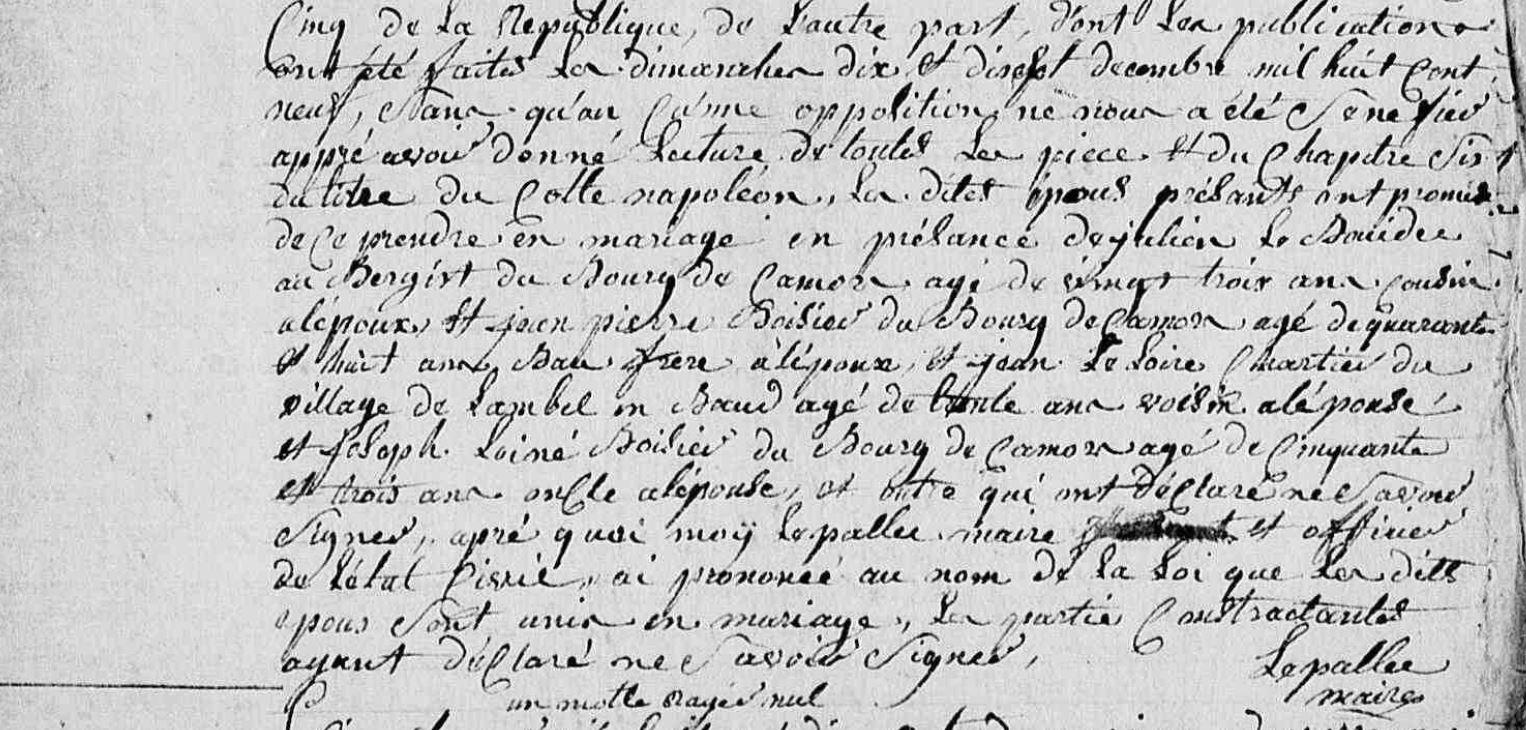 Cinq de la Republique, de l'autre part, dont les publications
ont été faites les dimanches dix et disept decembre mil huit cent
neuf, sans qu'au cunne oppolition ne nous a été
appré avoir donné lecture de toutes les piece et du Chapitre Six
du titre du Colte napoléon, les dites épous présants ont promis
de Ce prendre en mariage en présance de julien Le
au du Bourg de Camors agé de vingt trois ans cousin
a lépoux, et jean pierre Boisier du Bourg de Camors agé de quarante
et huit ans Bau frere à lépoux, et jean Le Loire Chartier du
village de Lambel en Baud agé de trente ans voisin a lépouse
et Joseph Loiné Boisier du Bourg de Camors agé de Cinquante
et trois ans oncle a lépouse, et qui ont déClaré ne Savoir
Signer, apré quoi moÿ Lepallec maire et officier
de Létat Civil, ai prononcé au nom de la Loi que Les dits
epous Sont unis en mariage, Les partie Constractantes
ayant déClaré ne Savoir Signer,
Lepallec
maire
un motte rayée nul